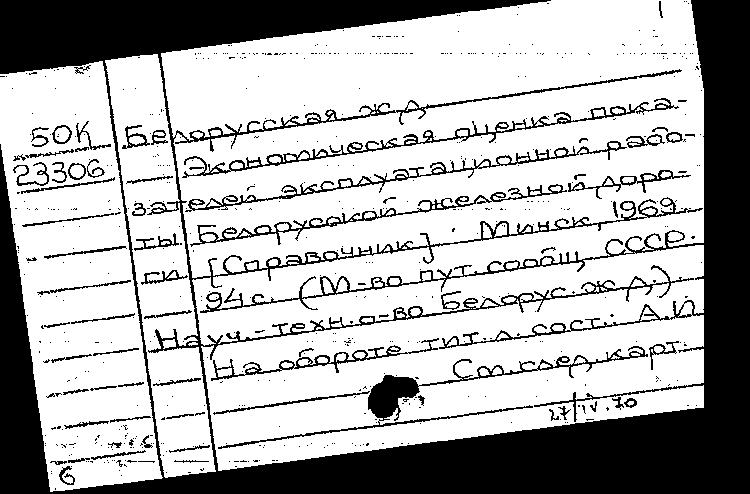 1
50К Белорусская ж.д.
23306 Экономическая оценка пока-
зателей эксплуатационной рабо-
ты Белорусской железной доро-
ги [Справочник]. Минск, 1969.
94 с. (М-во пут. сообщ. СССР.
Науч.-техн. о-во Белорус. ж.д.).
На обороте тит. л. сост.: А.И.
См. след. карт.
27/IV.70
6